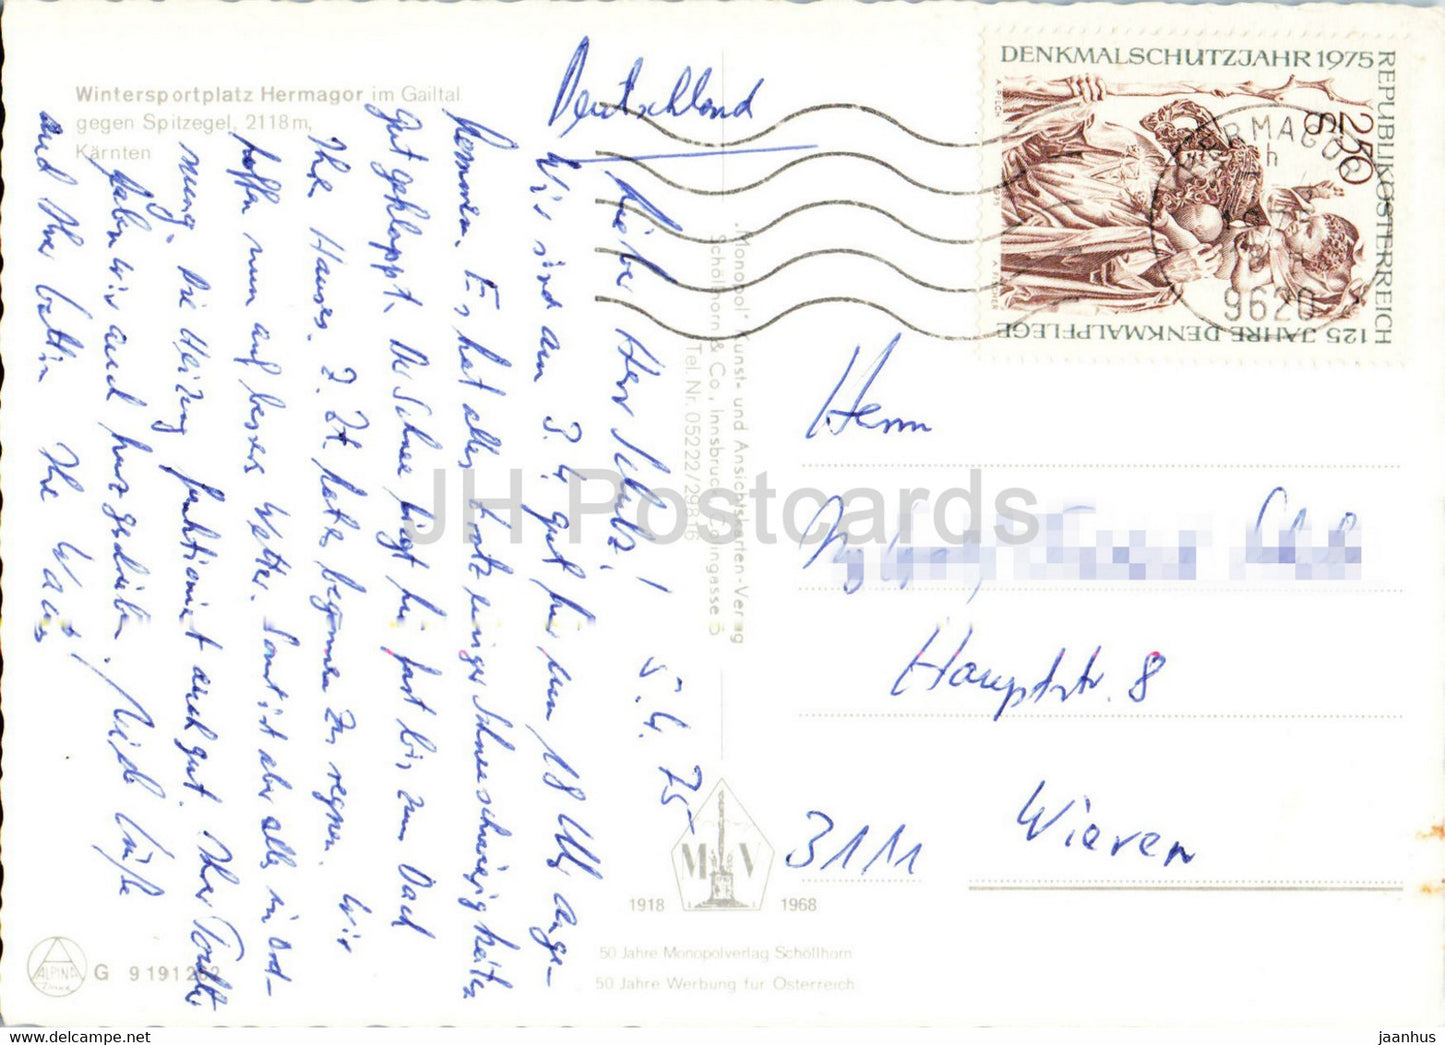 Wintersportplatz Hermagor im Gailtal
gegen Spitzegel, 2118 m,
Kärnten
Deutschland
DENKMALSCHUTZJAHR 1975
REPUBLIK ÖSTERREICH
S 2.50
125 JAHRE DENKMALPFLEGE
9620
5.4.75
Lieber Herr Schulz!
Wir sind am 3.4. gut hier um 18 Uhr ange-
kommen. Es hat alles trotz einiger Schneeschwierigkeiten
gut geklappt. Der Schnee liegt hier fast bis zum Dach
Ihres Hauses. Z. Zt. hat es begonnen zu regnen. Wir
hoffen nun auf besseres Wetter. Sonst ist aber alles in Ord-
nung. Die Heizung funktioniert auch gut. Ihrer Tochter
haben wir auch kurz geschrieben. Viele Grüße
auch Ihrer Gattin Ihre
"Monopol" Kunst- und Ansichtskarten-Verlag
Schöllhorn & Co., Innsbruck,
Tel. Nr. 05222/29816
Herrn
Hauptstr. 8
3111 Wieren
M V
1918 1968
50 Jahre Monopolverlag Schöllhorn
50 Jahre Werbung für Österreich
ALPINA
G 9 191 2
JH Postcards
www.delcampe.net
jaanhus